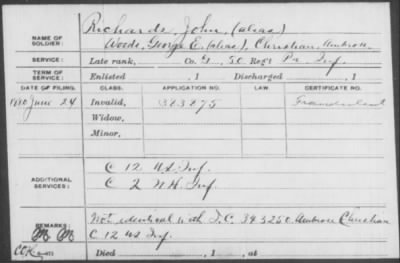 NAME OF SOLDIER: Richards, John, (alias)
Woods, George E. (alias), Christian, Ambrose
SERVICE: Late rank, Co. G, 50 Reg't Pa Inf.
TERM OF SERVICE: Enlisted , 1 Discharged , 1
DATE OF FILING. CLASS. APPLICATION NO. LAW. CERTIFICATE NO.
1880 June 24 Invalid, 383875 Fraudulent
Widow,
Minor,
ADDITIONAL SERVICES: C 12 US Inf.
C 2 N.H. Inf.
REMARKS: Not identical with I.C. 393250 Ambrose
C 12 US Inf.
Died , 1 , at